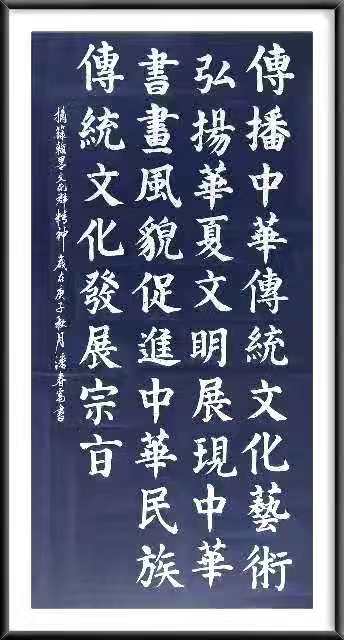 傳播中華傳統文化藝術
弘揚華夏文明展現中華
書畫風貌促進中華民族
傳統文化發展宗旨
摘錄墨文化群精神 歲在庚子秋月潘春書